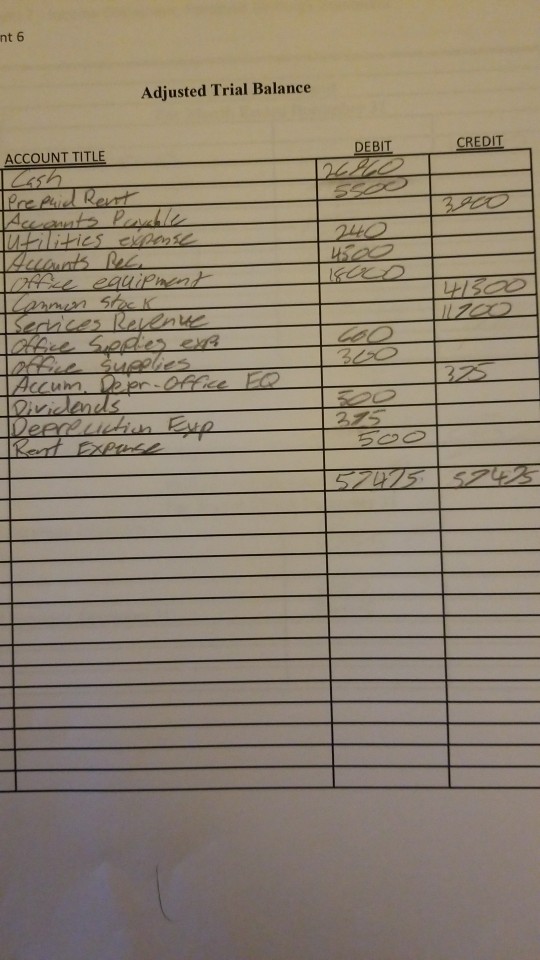 nt 6
Adjusted Trial Balance
ACCOUNT TITLE DEBIT CREDIT
Cash 26960
Prepaid Rent 5500
Accounts Payable 3900
Utilities expense 240
Accounts Rec. 4500
Office equipment 18000
Common Stock 41500
Services Revenue 11700
Office Supplies exp 600
Office Supplies 300
Accum. Depr-Office EQ 375
Dividends 500
Depreciation Exp 375
Rent Expense 500
57475 57475